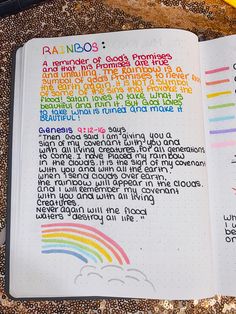 RAINBOWS:
A reminder of God's Promises
and that his Promises are true
and unfailing. The Rainbow is a
symbol of God's Promises to never flood
the earth again. it is not a symbol
of some of the sins that provoke the
flood. Satan loves to take what is
beautiful and ruin it. But God loves
to take what is ruined and make it
BEAUTIFUL!
Genesis 9:12-16 says
"Then God said I am giving you a
sign of my covenant with you and
with all living creatures, for all generations
to come. I have placed my rainbow
in the clouds. it is the sign of my covenant
with you and with all the earth.
when I send clouds over earth,
the rainbow will appear in the clouds.
and I will remember my covenant
with you and with all living
creatures.
Never again will the flood
waters destroy all life."